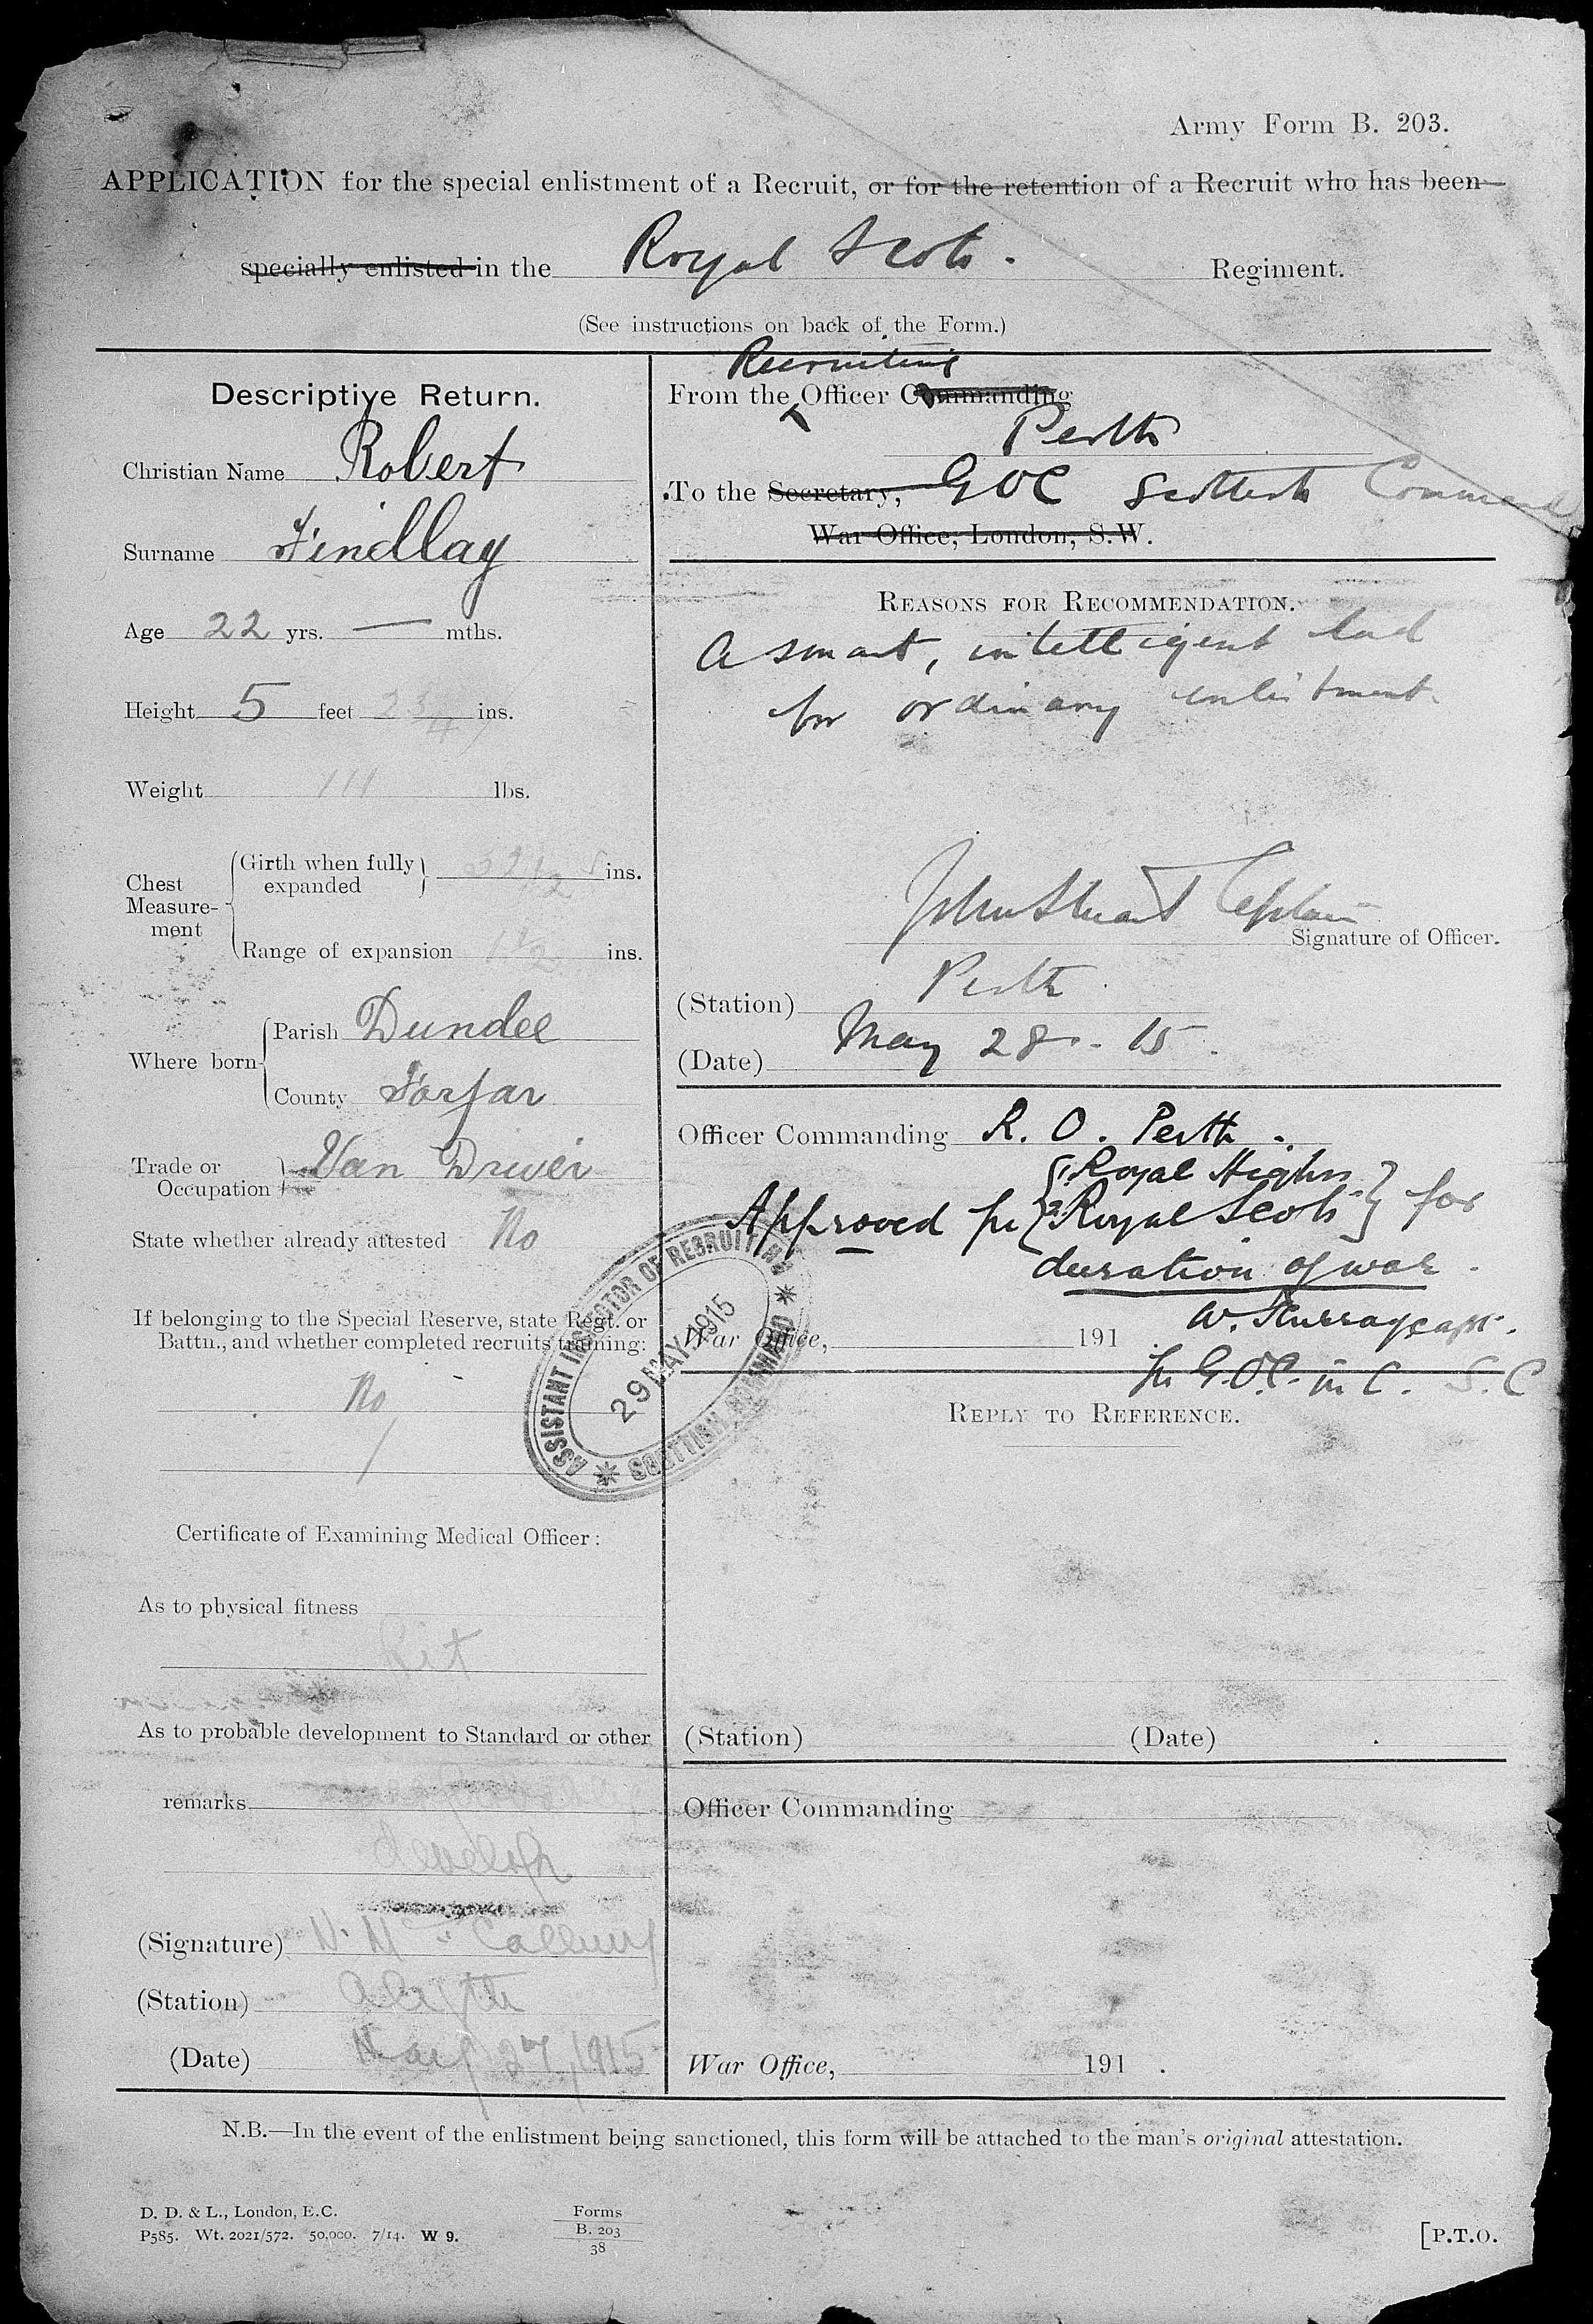 Army Form B. 203.
APPLICATION for the special enlistment of a Recruit, or for the retention of a Recruit who has been
specially enlisted in the Royal Scots. Regiment.
(See instructions on back of the Form.)
Descriptive Return.
Christian Name Robert
Surname Findlay
Age 22 yrs. — mths.
Height 5 feet 2 3/4 ins.
Weight 111 lbs.
Chest Measure-ment
Girth when fully expanded 32 1/2 ins.
Range of expansion 1 1/2 ins.
Where born
Parish Dundee
County Forfar
Trade or Occupation Van Driver
State whether already attested No
If belonging to the Special Reserve, state Regt. or
Battn., and whether completed recruits training:
No
Certificate of Examining Medical Officer:
As to physical fitness
Fit
As to probable development to Standard or other
remarks
develop
(Signature) N. McCallum
(Station) Alyth
(Date) May 27, 1915
Recruiting
From the Officer Commanding
Perth
To the Secretary, GOC Scottish Command
War Office, London, S.W.
REASONS FOR RECOMMENDATION.
A smart, intelligent lad
for ordinary enlistment.
John Stuart Captain
Signature of Officer.
(Station) Perth
(Date) May 28. 15.
Officer Commanding R. O. Perth.
1. Royal Highrs.
Approved for 2. Royal Scots for
duration of war.
W. Murray Capt.
War Office, 191
for G.O.C. in C. S.C
ASSISTANT INSPECTOR OF RECRUITING
29 MAY 1915
SCOTTISH COMMAND
REPLY TO REFERENCE.
(Station) (Date)
Officer Commanding
War Office, 191 .
N.B.—In the event of the enlistment being sanctioned, this form will be attached to the man's original attestation.
D. D. & L., London, E.C.
P585. Wt. 2021/572. 50,000. 7/14. W 9.
Forms
B. 203
38
[P.T.O.